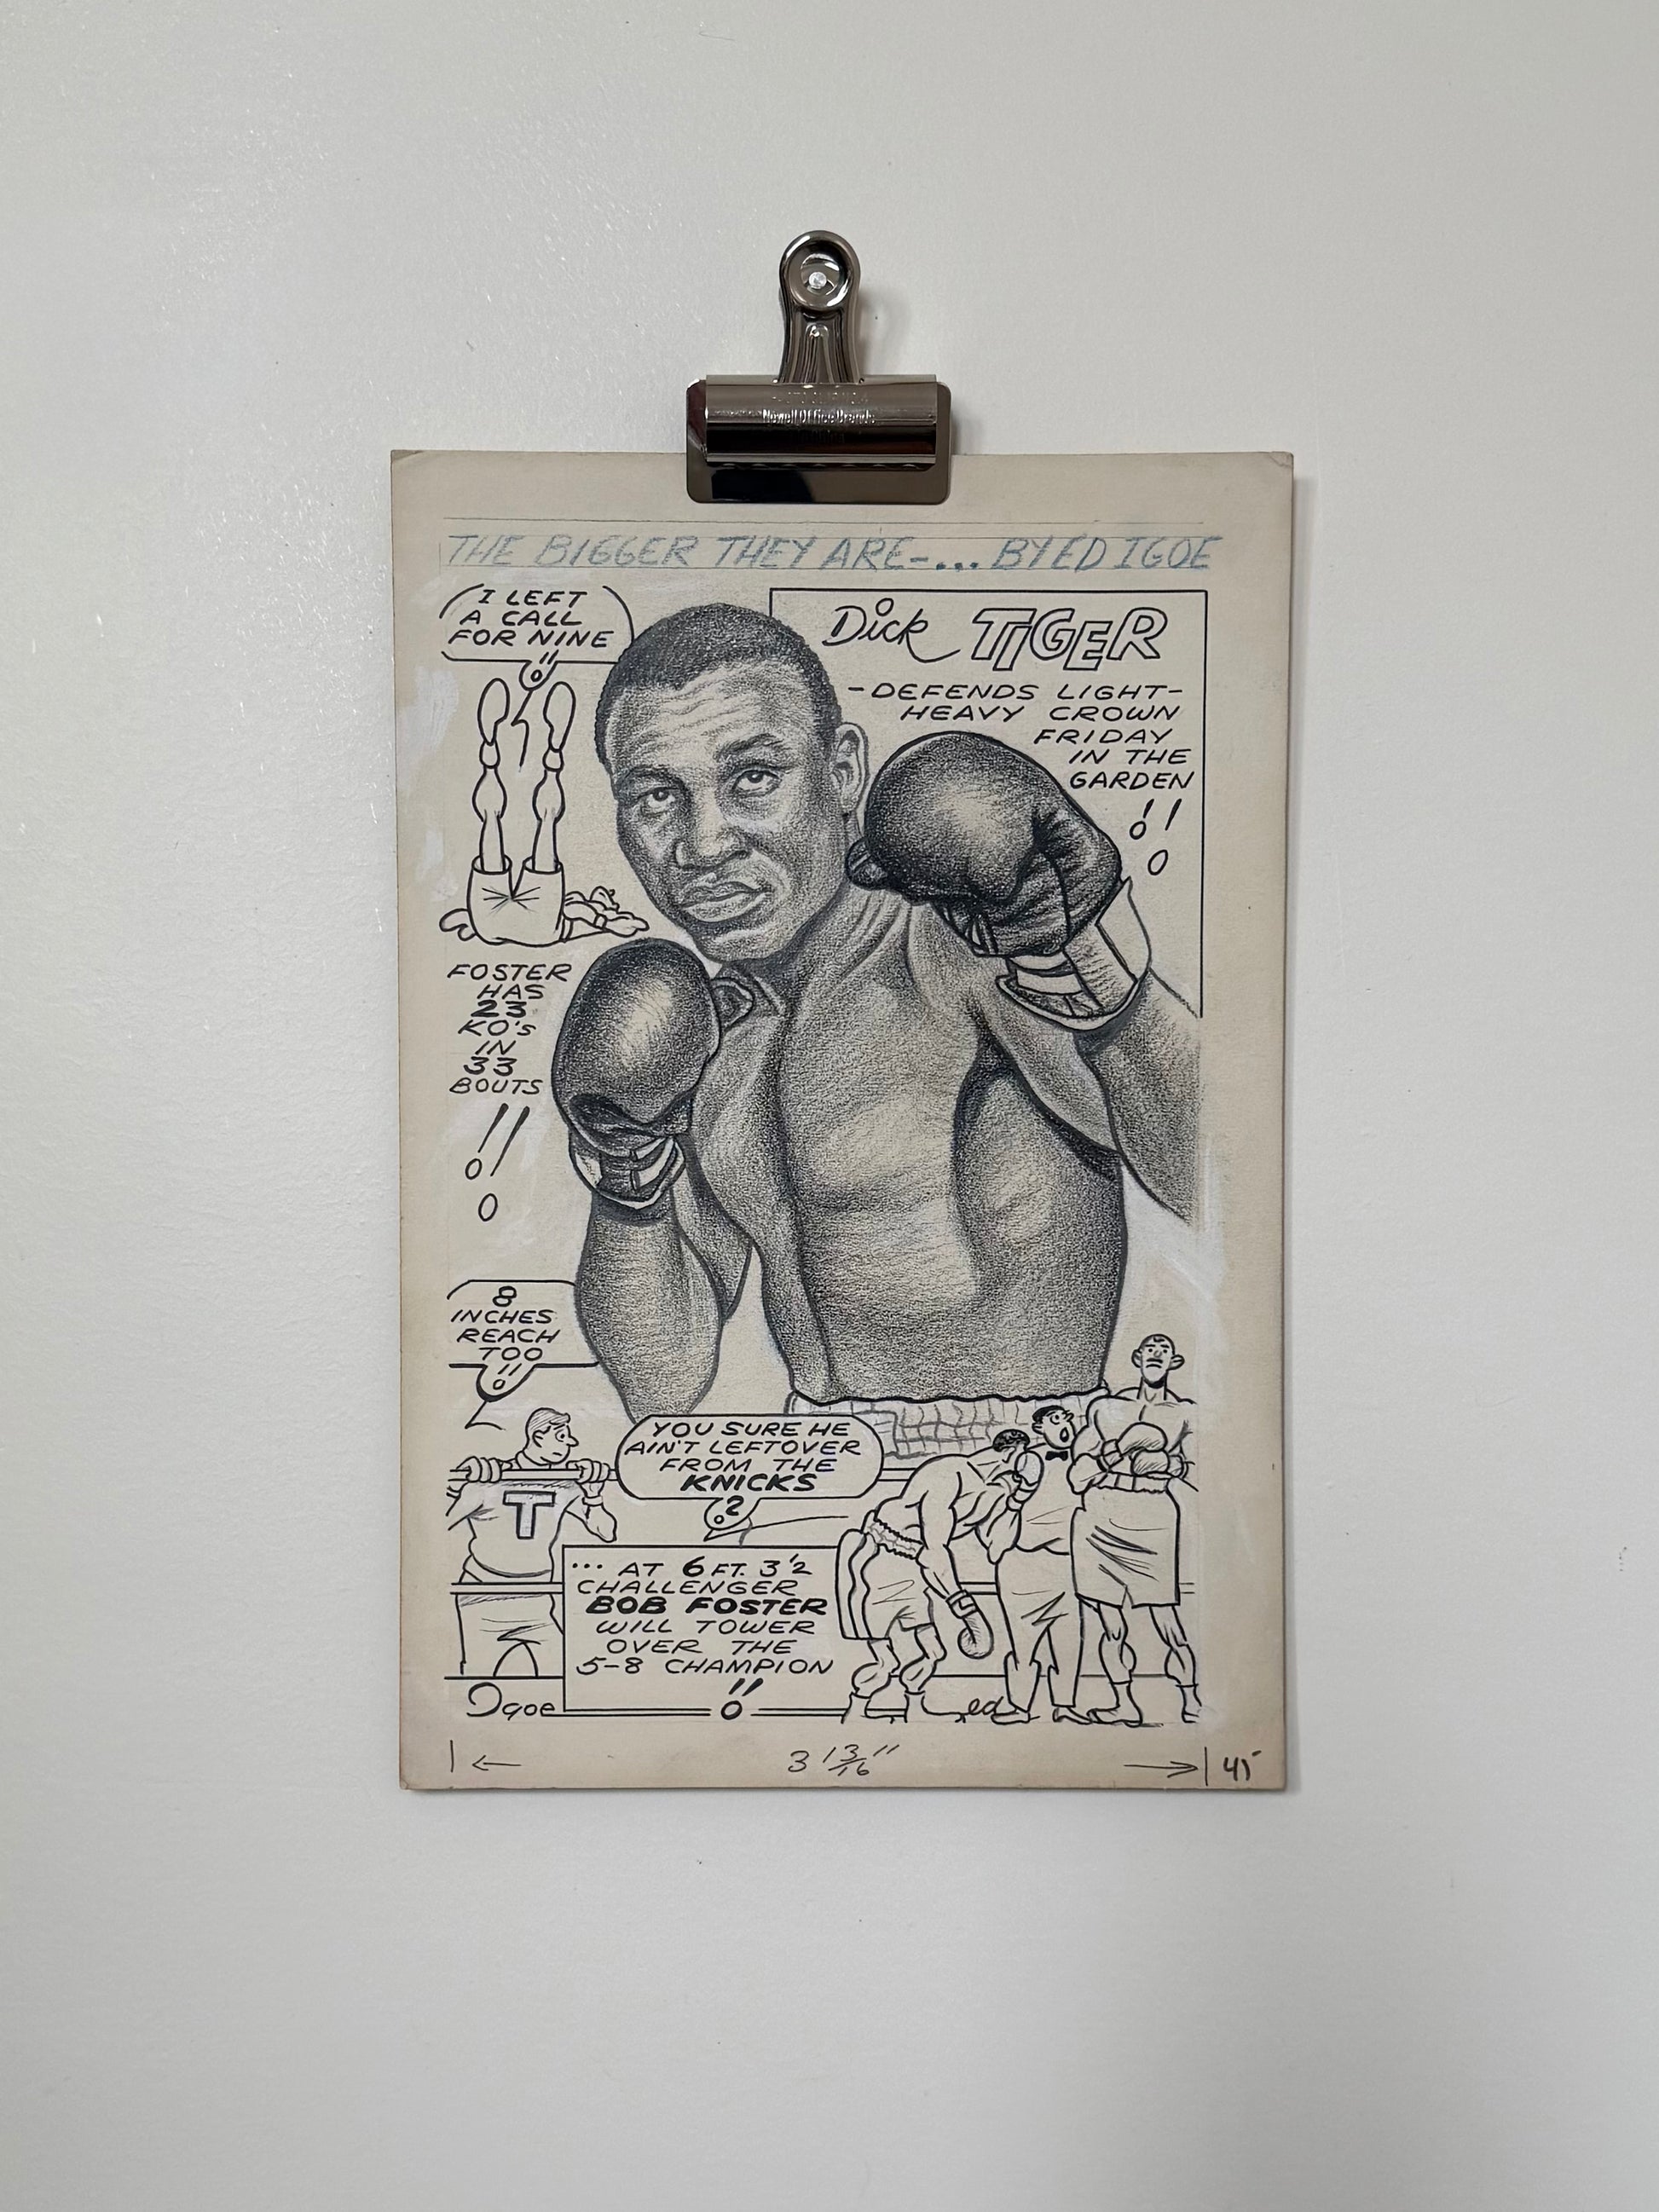 Newell Office Brands
THE BIGGER THEY ARE-... BY ED IGOE
I LEFT
A CALL
FOR NINE
!!
Dick TIGER
-DEFENDS LIGHT-
HEAVY CROWN
FRIDAY
IN THE
GARDEN
!!
FOSTER
HAS
23
KO's
IN
33
BOUTS
!!
8
INCHES
REACH
TOO
!!
T
YOU SURE HE
AIN'T LEFTOVER
FROM THE
KNICKS
?
... AT 6 FT. 3½
CHALLENGER
BOB FOSTER
WILL TOWER
OVER THE
5-8 CHAMPION
!!
Igoe
ed
|← 3 13/16" →| 45